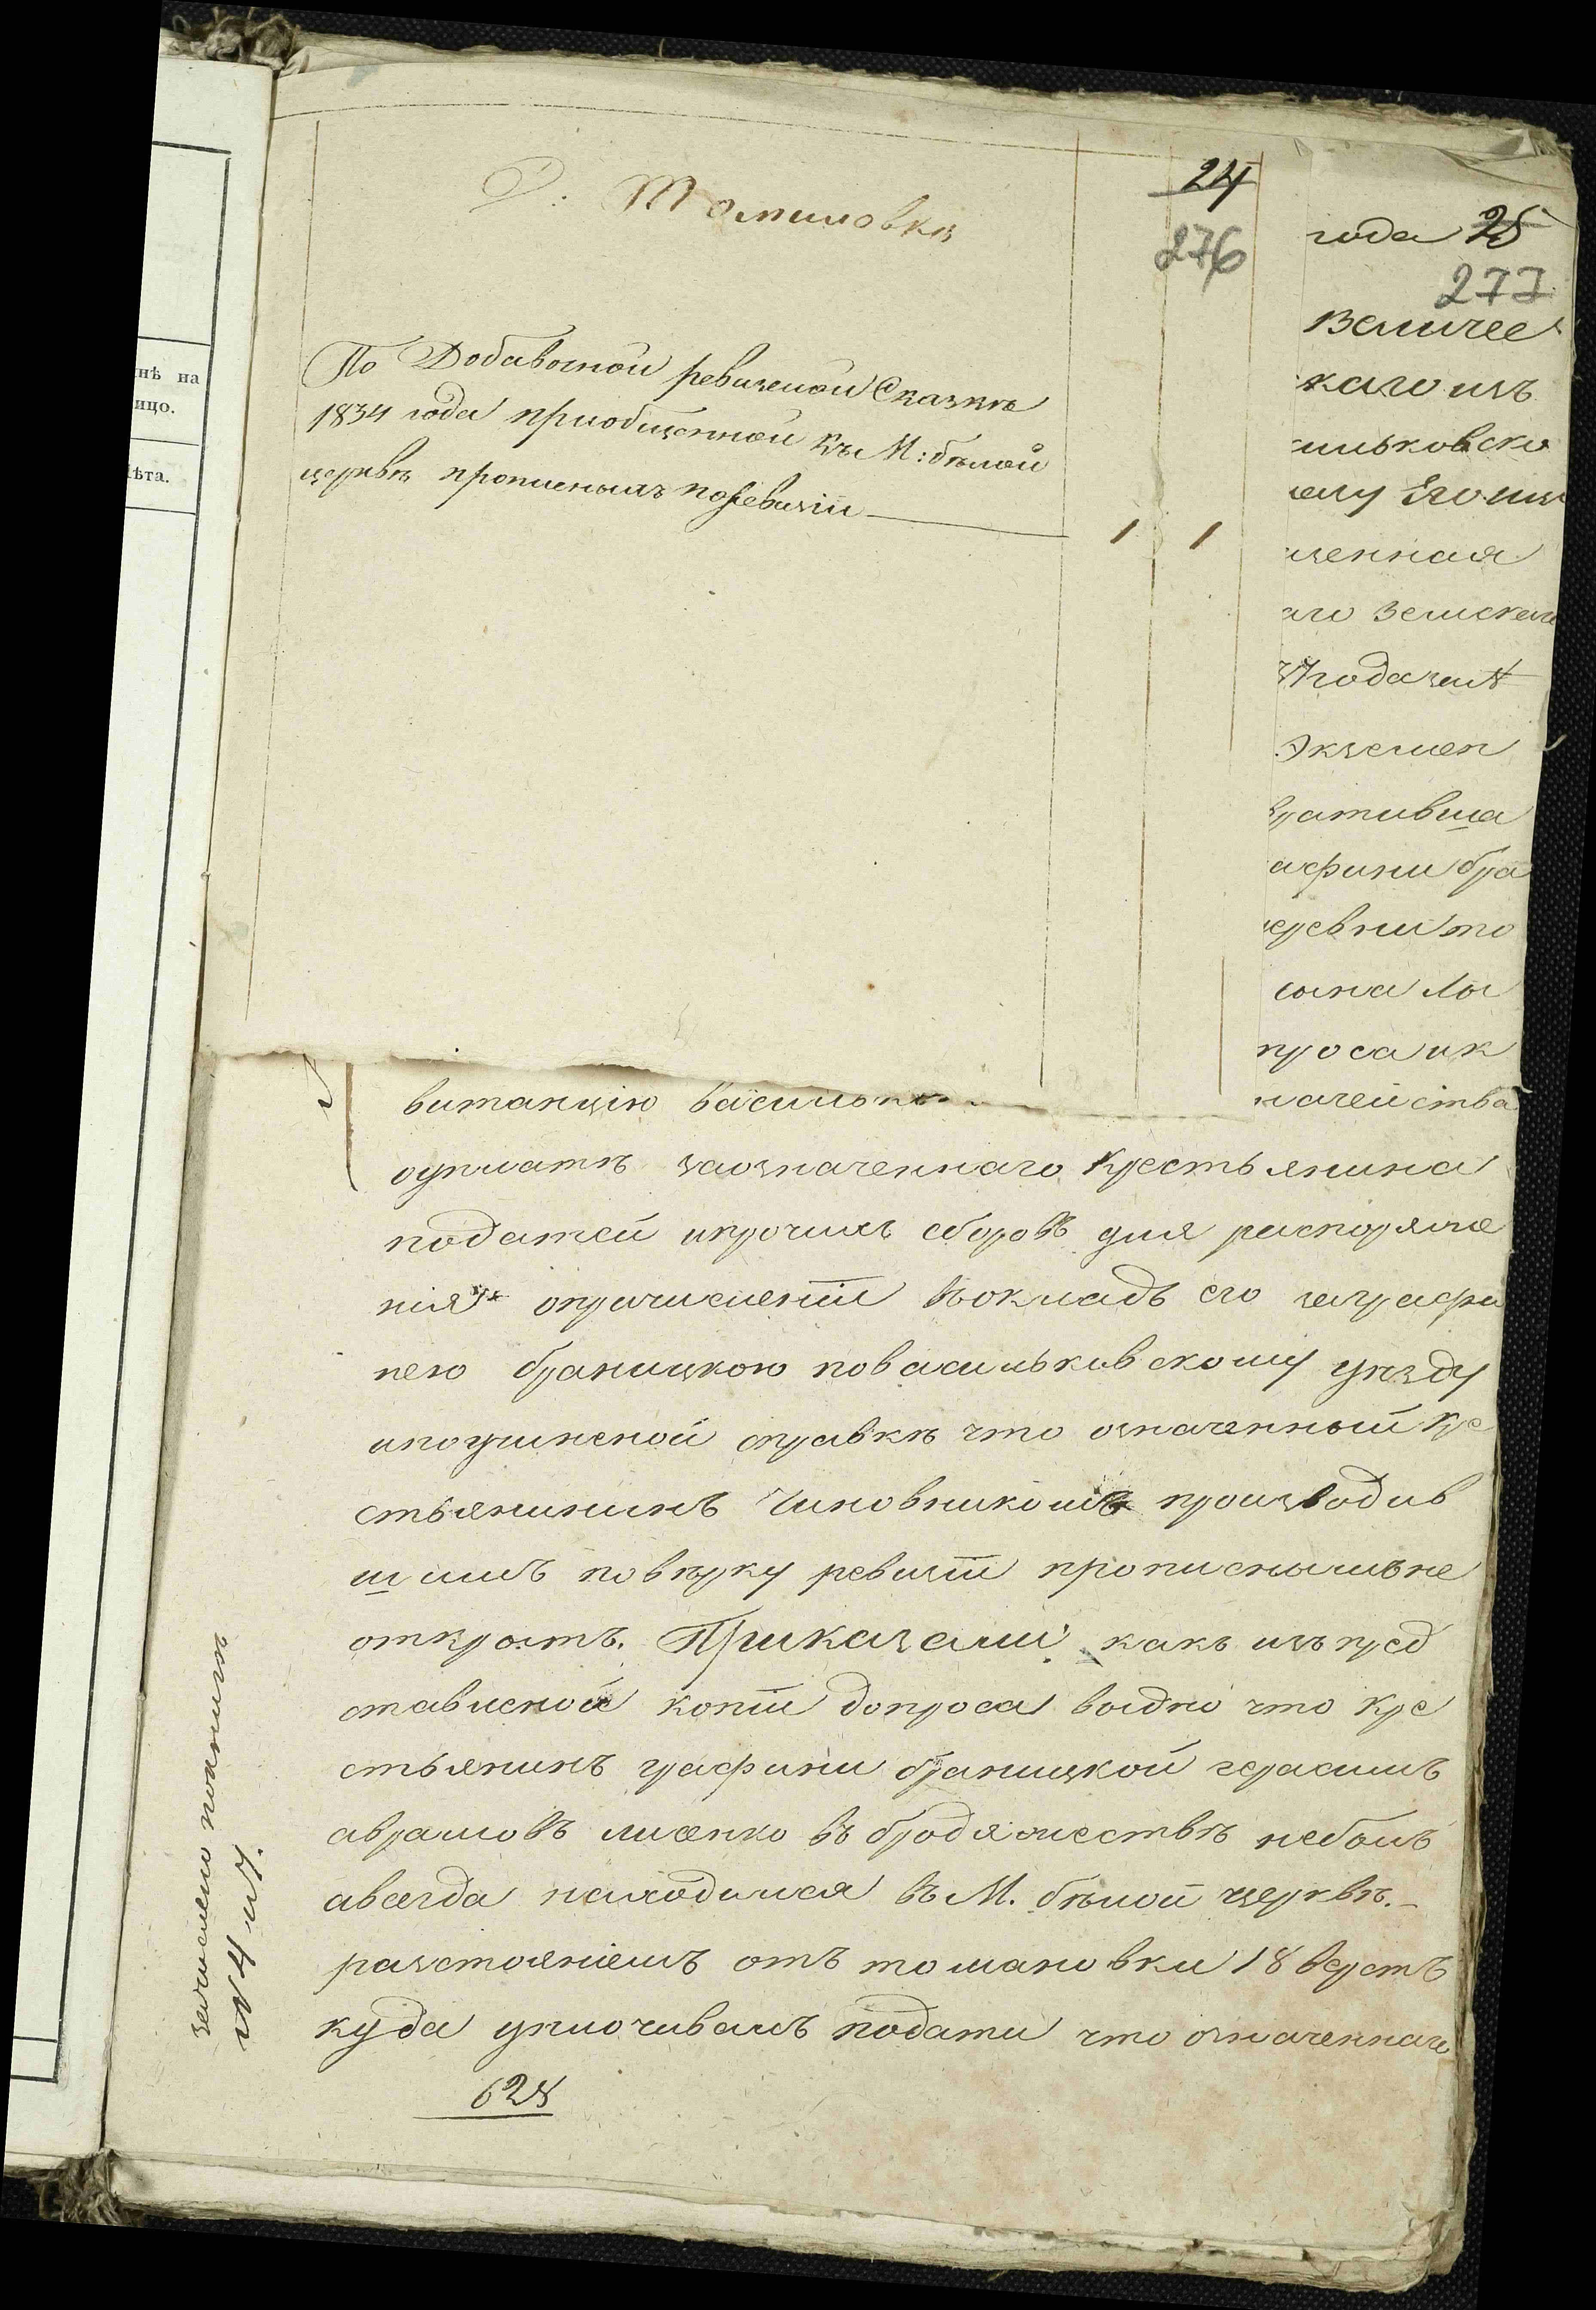 нѣ на
ицо.
ѣта.
Д. Томиловка
24
276
По Добавочной ревизской Сказкѣ
1834 года приобщенной къ М: бѣлой
церквѣ прописныхъ поревизіи — 1 1
года 25
277
Величес
каго изъ
сильковско
ему Его им
ченная
аго Земскаго
года за №
Экземп
вратившa
афини бра
еревни то
сына Лы
проса и к
начейства
витанцію Василько
оуплатѣ заозначеннаго крестьянина
податей ипрочихъ сборовъ для распоряже
нія опричисленіи вокладъ его заграфи
нею браницкою повасильковскому уѣзду
ипоучиненой справкѣ что означенный кре
стьянинъ Чиновникомъ производив
шимъ повѣрку ревизіи прописнымъ не
открытъ. Приказали: какъ изъ пред
ставленой копіи допроса выдно что кре
стьянинъ графини браницкой герасимъ
аврамовъ лисенко въ бродяжествѣ небылъ
авсегда находился въ М. бѣлой церквѣ.
разстояніемъ отъ томановки 18 верстъ
куда уплочивалъ подати что означеннаго
628
зачислено
№ 4